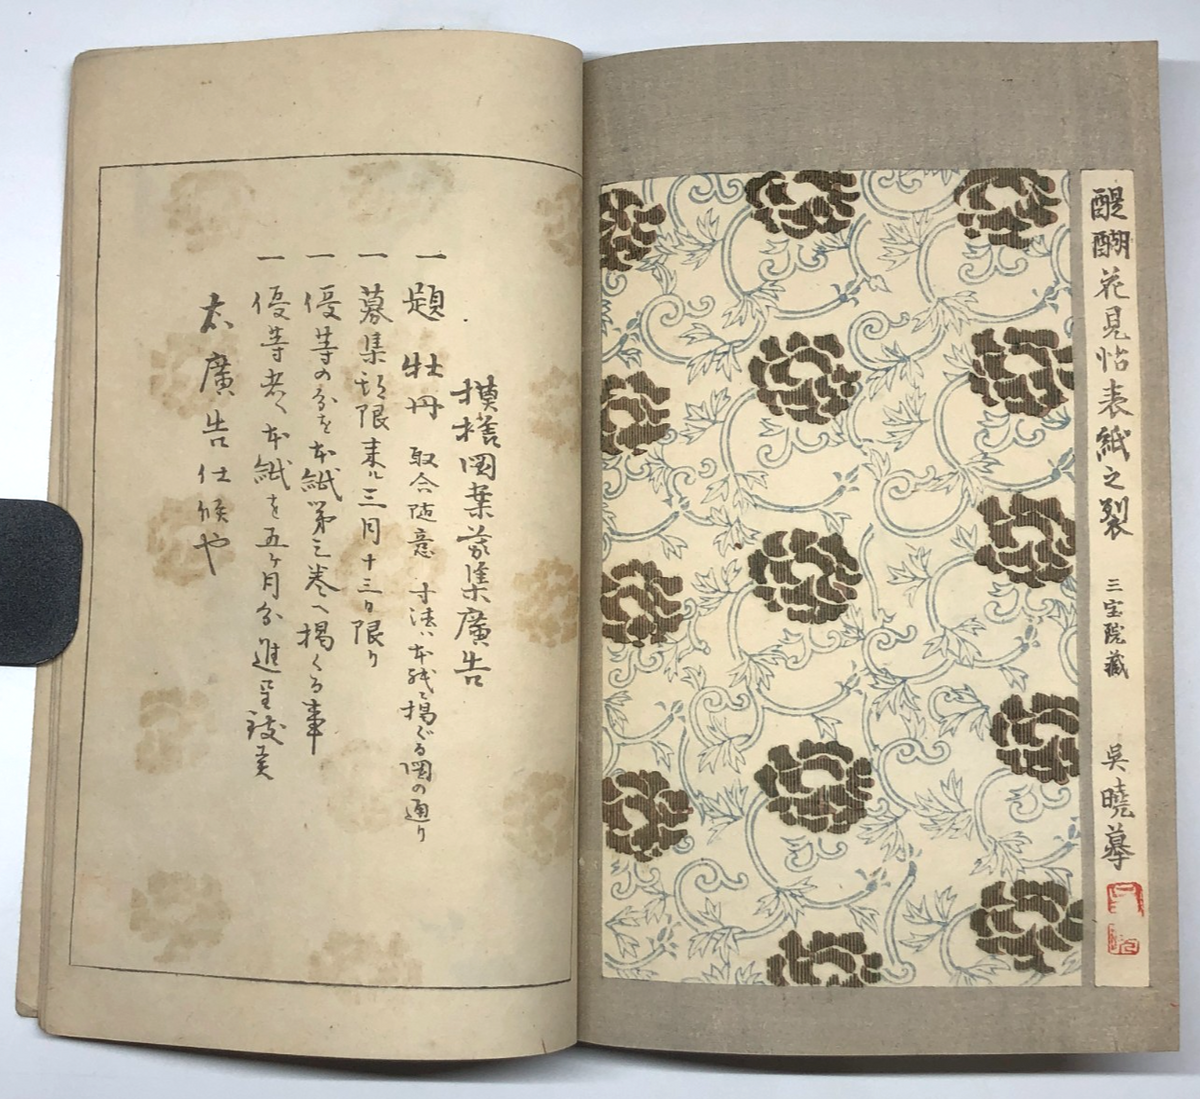 醍醐花見帖表紙之裂 三宝院蔵 呉暁摹
模様図案募集廣告
一 題 牡丹 取合随意 寸法ハ本紙ニ掲ぐる図の通り
一 募集期限来ル三月十三日限り
一 優等の分を本紙第三巻へ掲くる事
一 優等者へ本紙を五ヶ月分進呈致
右廣告仕候也